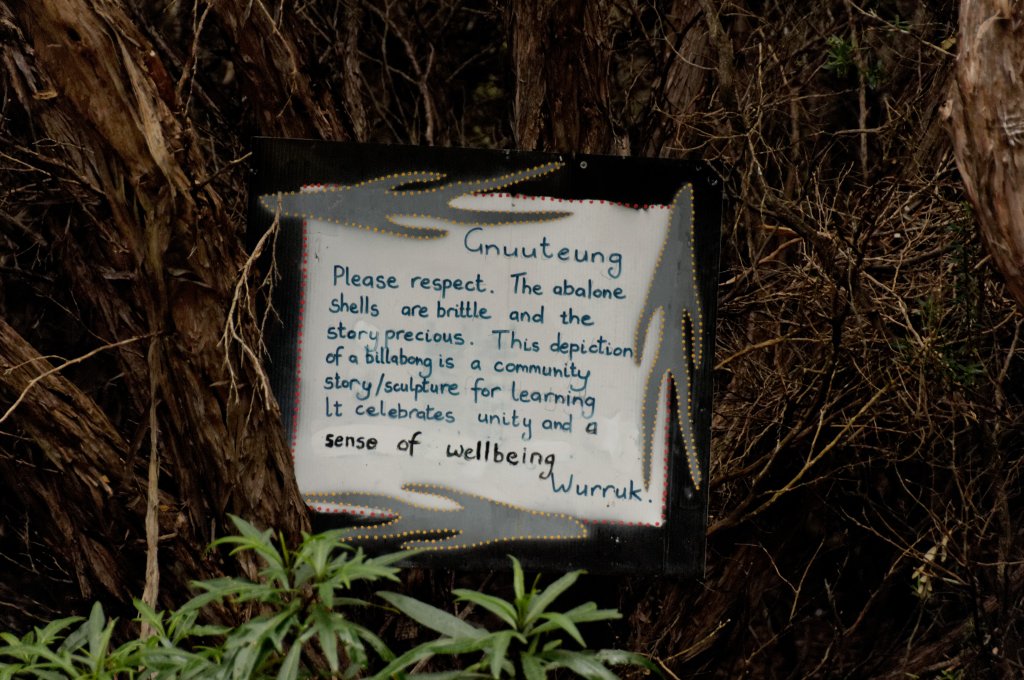 Gnuuteung
Please respect. The abalone
shells are brittle and the
story precious. This depiction
of a billabong is a community
story/sculpture for learning
It celebrates unity and a
sense of wellbeing
Wurruk.